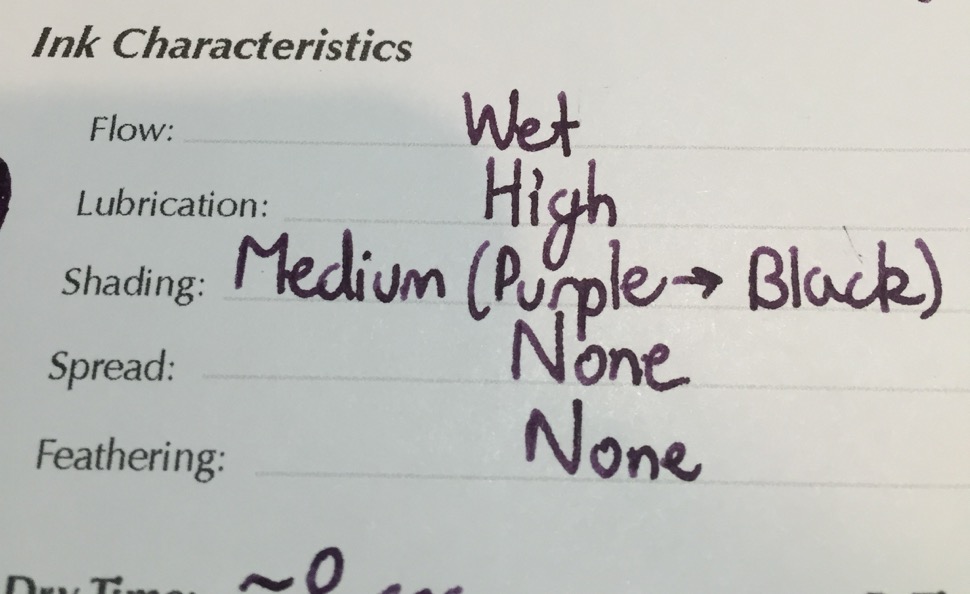 Ink Characteristics
Flow: Wet
Lubrication: High
Shading: Medium (Purple → Black)
Spread: None
Feathering: None
Dry Time: